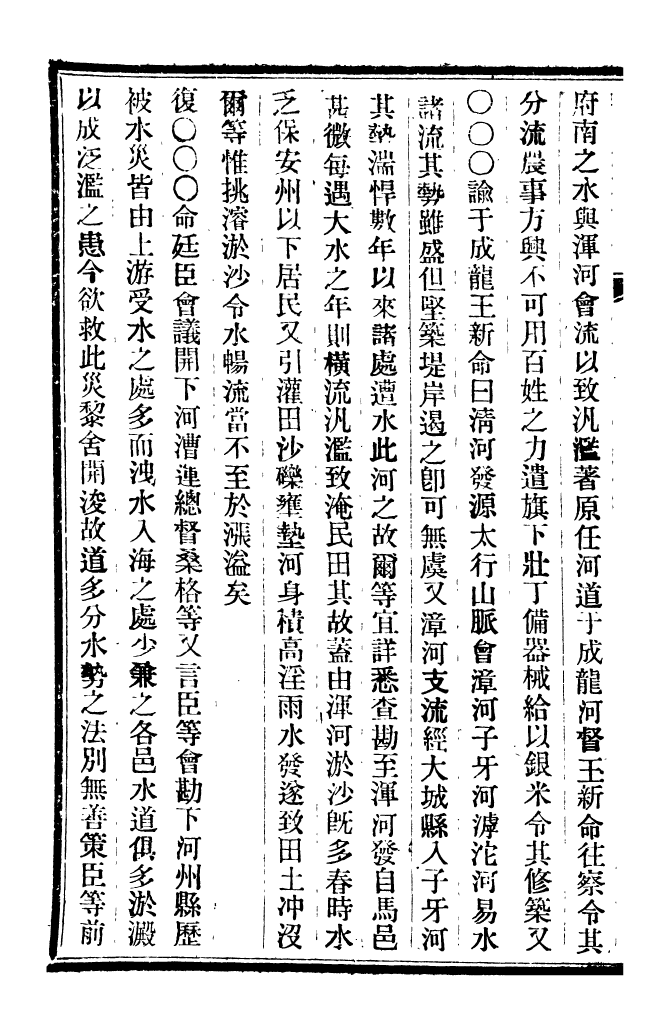 府南之水與渾河會流以致汎濫著原任河道于成龍河督王新命往察令其
分流農事方興不可用百姓之力遣旗下壯丁備器械給以銀米令其修築又
〇〇〇諭于成龍王新命曰清河發源太行山脈會漳河子牙河滹沱河易水
諸流其勢雖盛但堅築堤岸遏之卽可無虞又漳河支流經大城縣入子牙河
其埶湍悍數年以來諸處遭水此河之故爾等宜詳悉查勘至渾河發自馬邑
甚微每遇大水之年則橫流汎濫致淹民田其故蓋由渾河淤沙旣多春時水
乏保安州以下居民又引灌田沙礫壅墊河身積高淫雨水發遂致田土冲沒
爾等惟挑濬淤沙令水暢流當不至於漲溢矣
復〇〇〇命廷臣會議開下河漕運總督桑格等又言臣等會勘下河州縣歷
被水災皆由上游受水之處多而洩水入海之處少兼之各邑水道俱多淤澱
以成泛濫之患今欲救此災黎舍開浚故道多分水勢之法別無善策臣等前